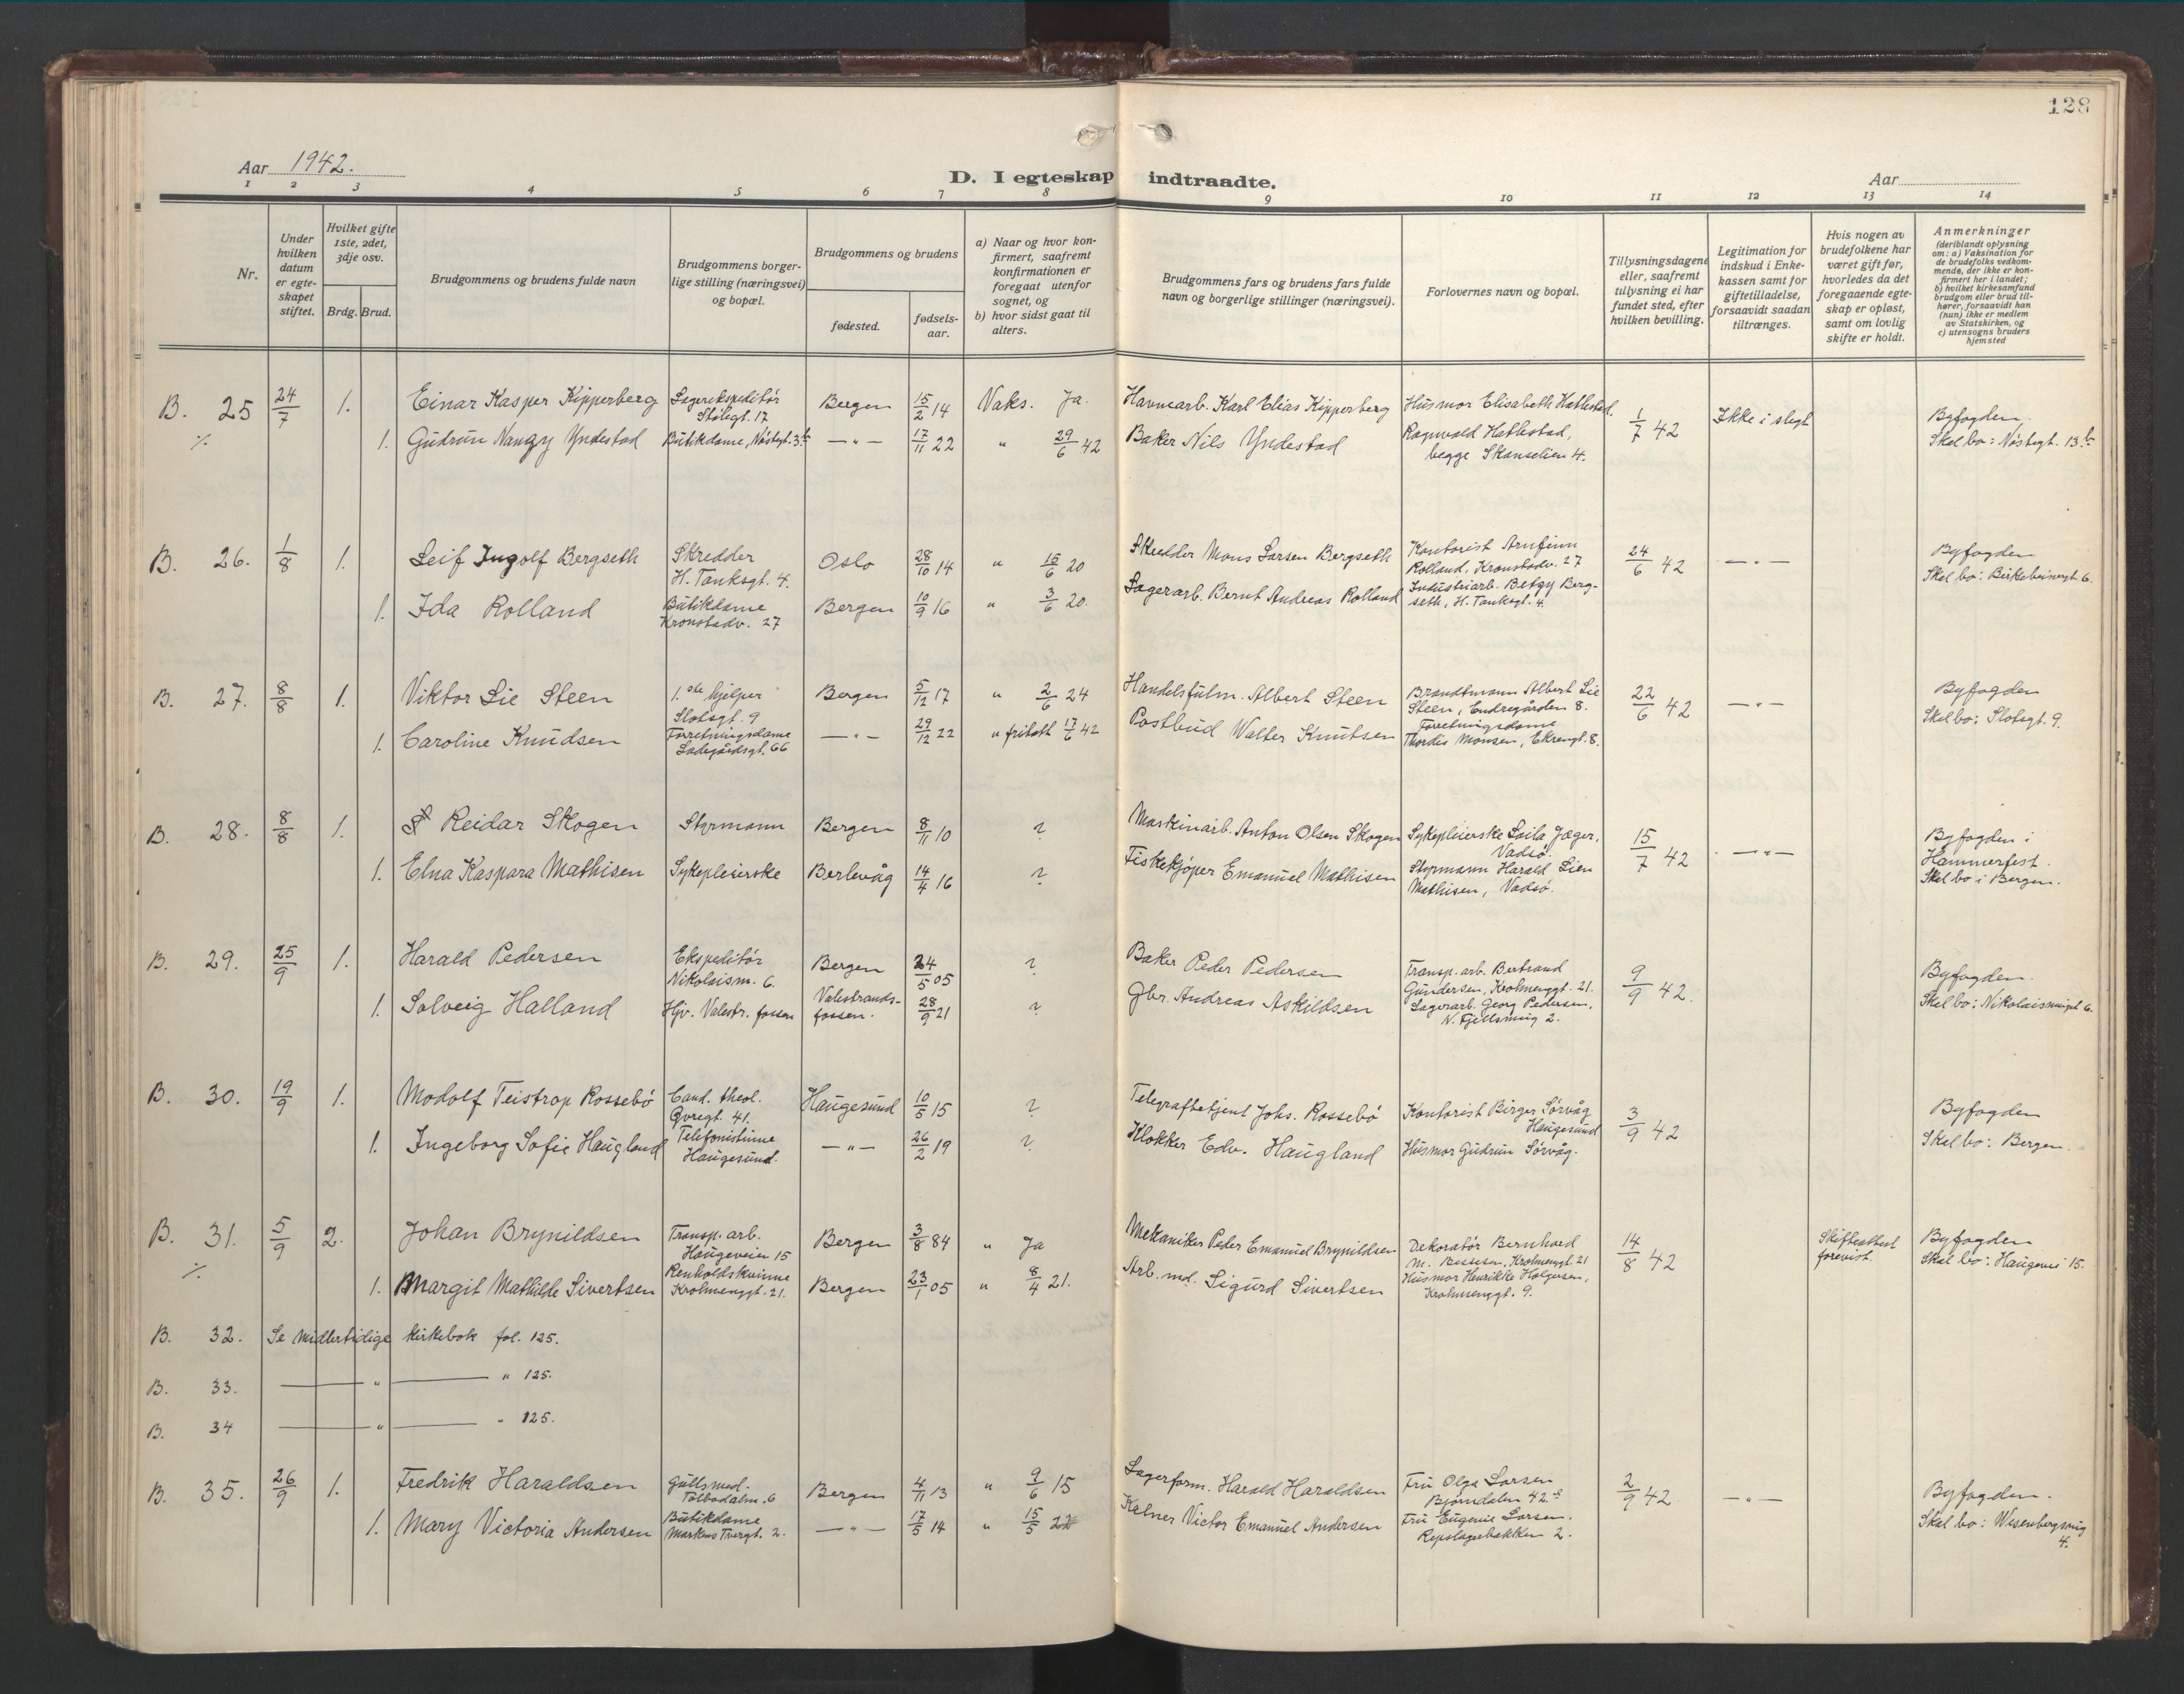 128
Aar 1942.
D. I egteskap indtraadte.
Aar
1 2 3 4 5 6 7 8 9 10 11 12 13 14
Nr.
Under hvilken datum er egteskapet stiftet.
Hvilket gifte 1ste, 2det, 3dje osv.
Brdg. Brud.
Brudgommens og brudens fulde navn
Brudgommens borgerlige stilling (næringsvei) og bopæl.
Brudgommens og brudens
fødested.
fødselsaar.
a) Naar og hvor konfirmert, saafremt konfirmationen er foregaat utenfor sognet, og
b) hvor sidst gaat til alters.
Brudgommens fars og brudens fars fulde navn og borgerlige stillinger (næringsvei).
Forlovernes navn og bopæl.
Tillysningsdagene eller, saafremt tillysning ei har fundet sted, efter hvilken bevilling.
Legitimation for indskud i Enkekassen samt for giftetilladelse, forsaavidt saadan tiltrænges.
Hvis nogen av brudefolkene har været gift før, hvorledes da det foregaaende egteskap er opløst, samt om lovlig skifte er holdt.
Anmerkninger (deriblandt oplysning om: a) Vaksination for de brudefolks vedkommende, der ikke er konfirmert her i landet; b) hvilket kirkesamfund brudgom eller brud tilhører, forsaavidt han (hun) ikke er medlem av Statskirken, og c) utensogns bruders hjemsted
B. 25 24/7 1. Einar Kasper Kipperberg Lagerekspeditør Stølegt. 17 Bergen 15/2 14 Vaks. Ja. Havnearb. Karl Elias Kipperberg Husmor Elisabeth Hatlestad. 1/7 42 Ikke i slegt Byfogden.
% 1. Gudrun Nangy Yndestad Butikdame, Nøstegt. 13b — " — 17/11 22 " 29/6 42 Baker Nils Yndestad Ragnvald Hatlestad, begge Skanselien 4. Skal bo: Nøstegt. 13b
B. 26. 1/8 1. Leif Ingolf Bergseth Skredder H. Tanksgt. 4. Oslo 28/10 14 " 15/6 20 Skredder Mons Larsen Bergseth Kontorist Arnfinn Rolland, Kronstadv. 27 24/6 42 — " — Byfogden
1. Ida Rolland Butikdame Kronstadv. 27 Bergen 10/9 16 " 3/6 20. Lagerarb. Bernt Andreas Rolland Industriarb. Betzy Bergseth, H. Tanksgt. 4. Skal bo: Birkebeinergt. 6.
B. 27. 8/8 1. Viktor Lie Steen 1.ste hjelper Slotsgt. 9 Bergen 5/12 17 " 2/6 24 Handelsfulm. Albert Steen Brandtmann Albert Lie Steen, Endregården 8. 22/6 42 — " — Byfogden
1. Caroline Knudsen Forretningsdame Ladegårdsgt. 66 — " — 29/12 22 " fritatt 17/6 42 Postbud Walter Knutsen Forretningsdame Thordis Monsen, Ekrengt. 8. Skal bo: Slotsgt. 9.
B. 28. 8/8 1. Reidar Skogen Styrmann Bergen 8/11 10 ? Maskinarb. Anton Olsen Skogen Sykepleierske Laila Jæger. Vadsø. 15/7 42 — " — Byfogden i Hammerfest.
1. Elna Kaspara Mathisen Sykepleierske Berlevåg 14/4 16 ? Fiskekjøper Emanuel Mathisen Styrmann Harald Lien Mathisen, Vadsø. Skal bo i Bergen.
B. 29. 25/9 1. Harald Pedersen Ekspeditør Nikolaism. 6. Bergen 24/5 05 ? Baker Peder Pedersen Transp. arb. Bertrand Gundersen, Krohnenggt. 21. 9/9 42. Byfogden.
1. Solveig Halland Hjv. Valestr. fossen Valestrandsfossen. 28/9 21 ? Gbr. Andreas Askildsen Lagerarb. Georg Pedersen, N. Fjellsmug 2. Skal bo: Nikolaismuget 6.
B. 30. 19/9 1. Modolf Teistrop Rossebø Cand. theol. Øvregt. 41. Haugesund 10/5 15 ? Telegrafbetjent Johs. Rossebø Kontorist Birger Sørvåg Haugesund 3/9 42 Byfogden
1. Ingeborg Sofie Haugland Telefonistinne Haugesund. — " — 26/2 19 ? Klokker Edv. Haugland Husmor Gudrun Sørvåg. Skal bo: Bergen.
B. 31. 5/9 2. Johan Brynildsen Transp. arb. Haugeveien 15 Bergen 3/8 84 " Ja Mekaniker Peder Emanuel Brynildsen Dekoratør Bernhard M. Bessesen, Krohnenggt. 21 14/8 42 Skifteattest forevist. Byfogden
% 1. Margit Mathilde Sivertsen Renholdskvinne Krohnenggt. 21. Bergen 23/1 05 " 8/4 21. Arb. md. Sigurd Sivertsen Husmor Henrikke Holgersen, Krohnenggt. 9. Skal bo: Haugevei 15.
B. 32. Se midlertidige kirkebok fol. 125.
B. 33. — " — " 125.
B. 34 — " — " 125.
B. 35. 26/9 1. Fredrik Haraldsen Gullsmed. Tolbodalm. 6 Bergen 4/11 13 " 9/6 15 Lagerform. Harald Haraldsen Fru Olga Larsen Bjørndalen 42. 2/9 42 — " — Byfogden.
1. Mary Victoria Andersen Butikdame Markus Tvergt. 2. — " — 17/5 14 " 15/5 22 Kelner Victor Emanuel Andersen Fru Eugenie Larsen. Repslagerbakken 2. Skal bo: Wesenbergsmug 4.